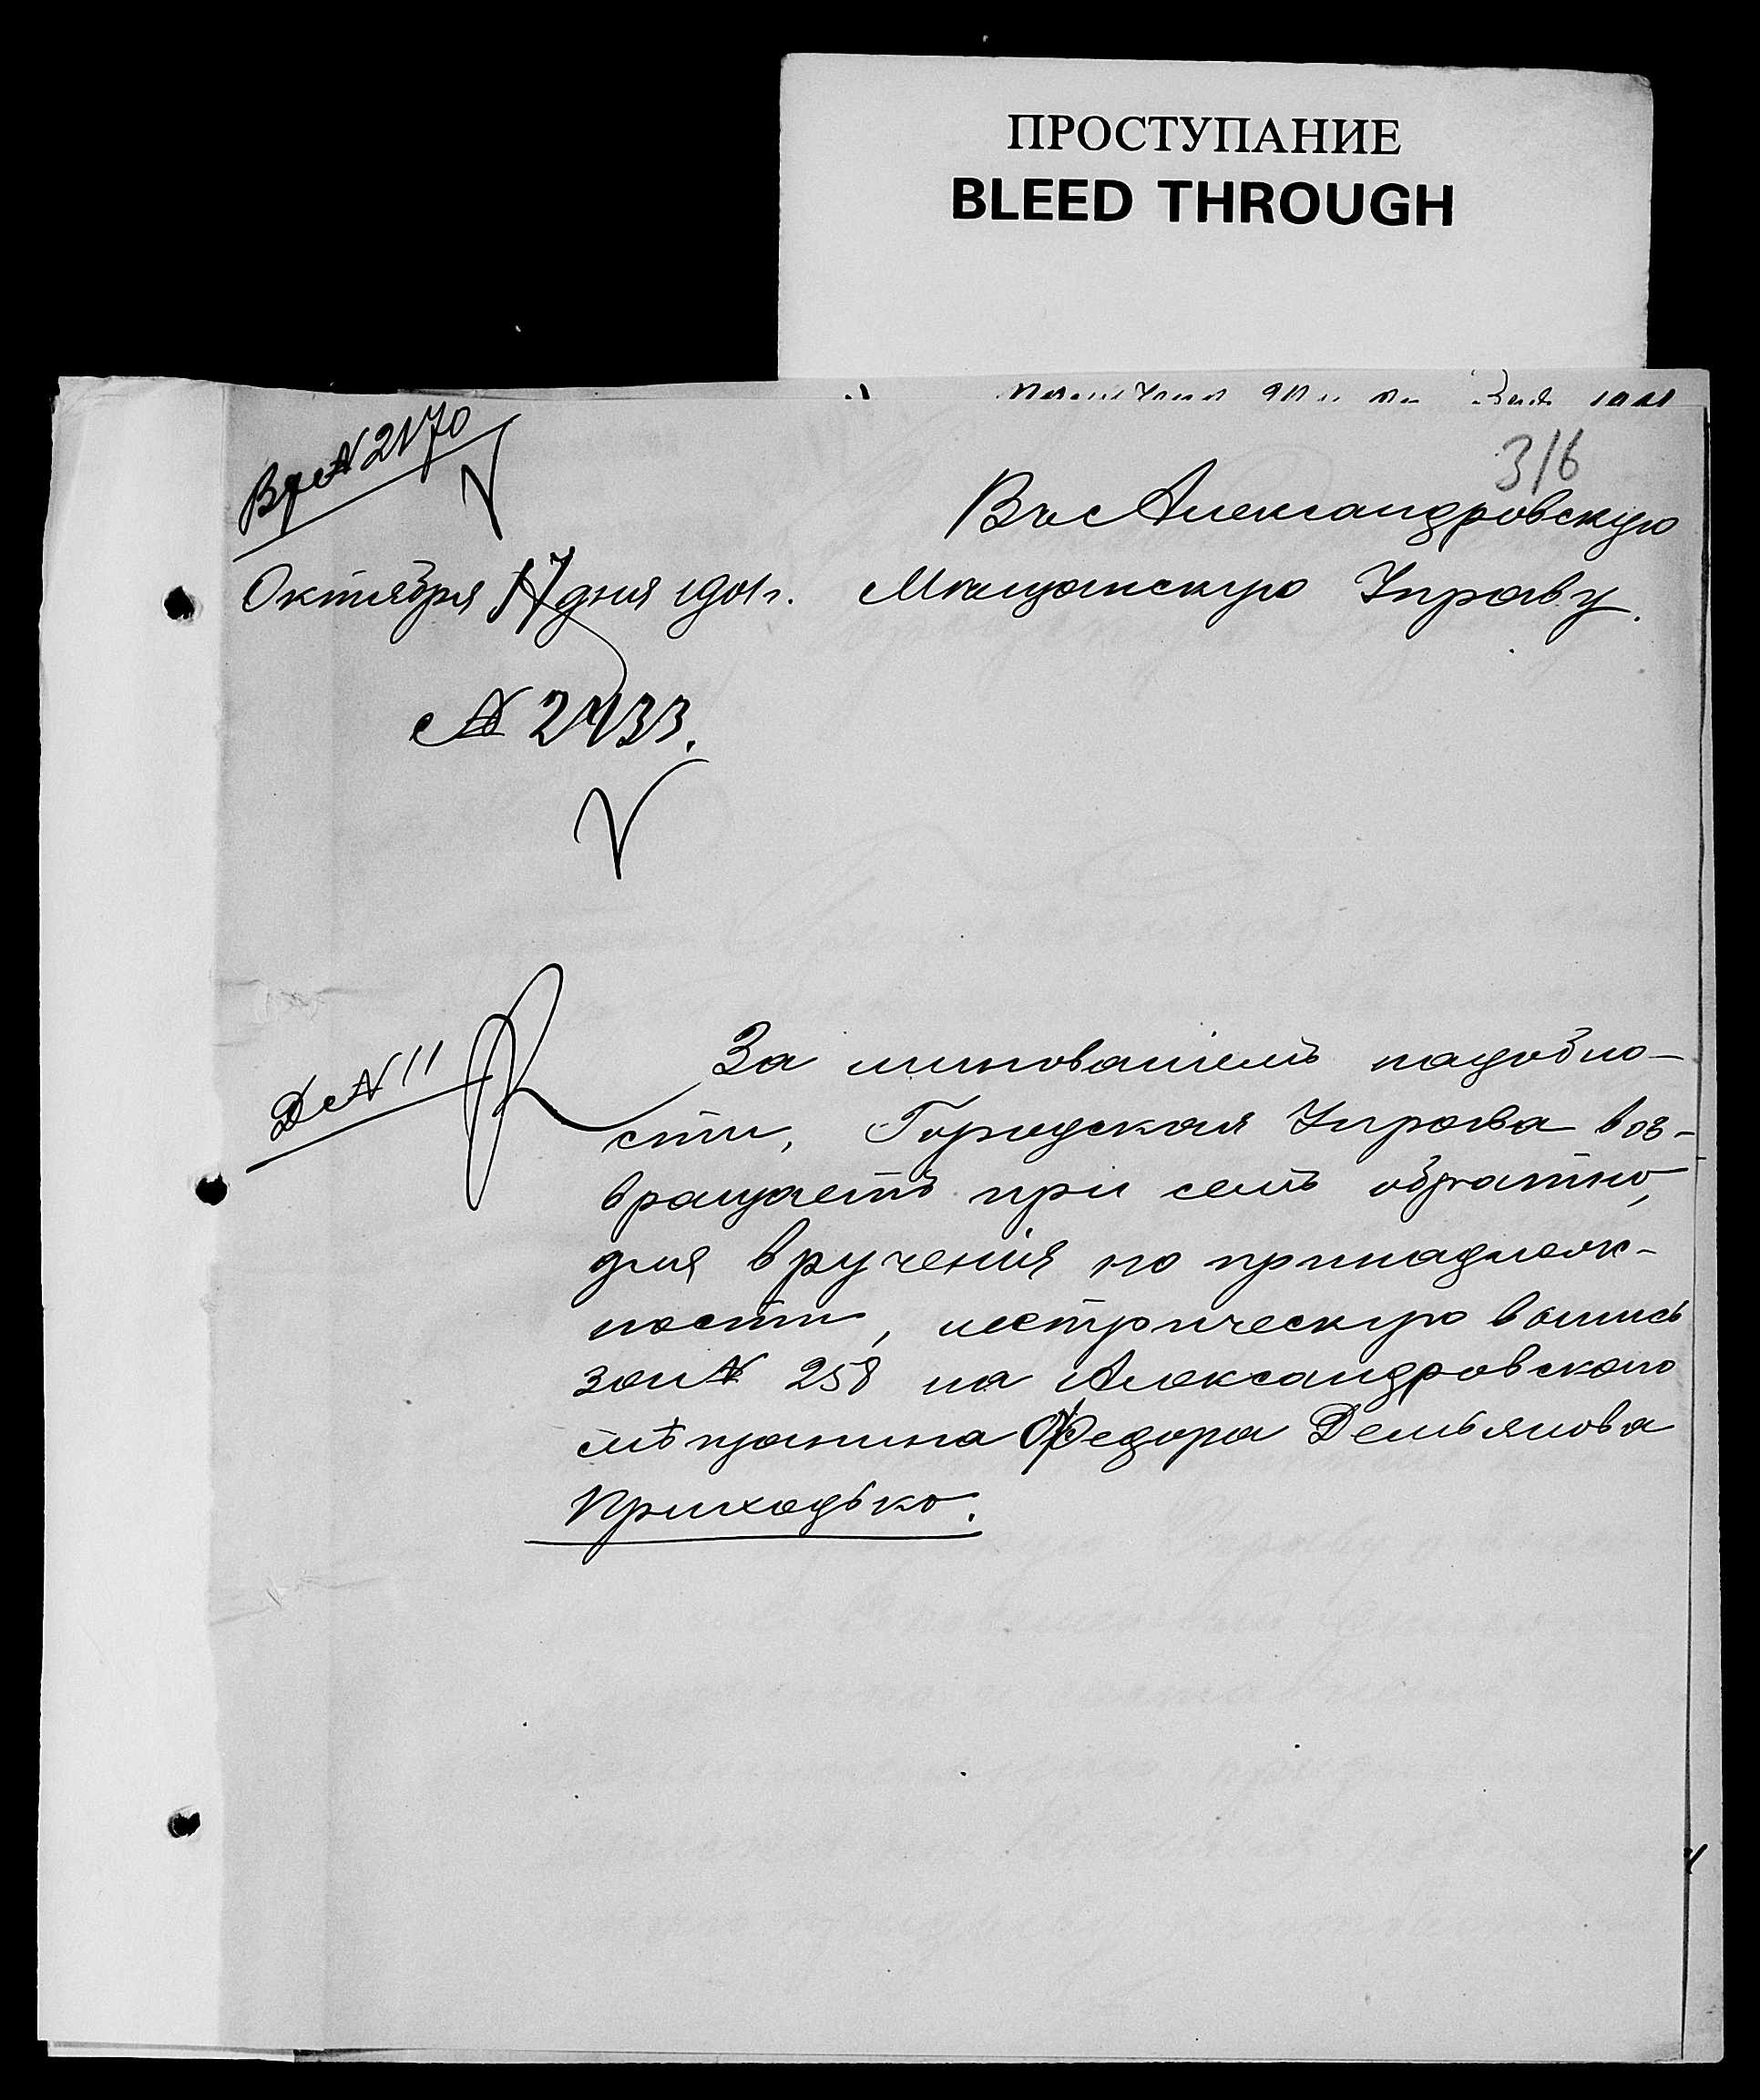 ПРОСТУПАНИЕ
BLEED THROUGH
316
Вх № 2170
Въ Александровскую
Октября 17 дня 1901 г. Мѣщанскую Управу.
№ 2433.
За минованіемъ надобно-
Д № 11
сти, Городская Управа воз-
вращаетъ при семъ обратно,
для врученія по принадлеж-
ности, метрическую выпись
за № 258 на Александровскаго
мѣщанина Федора Демьянова
Приходько.